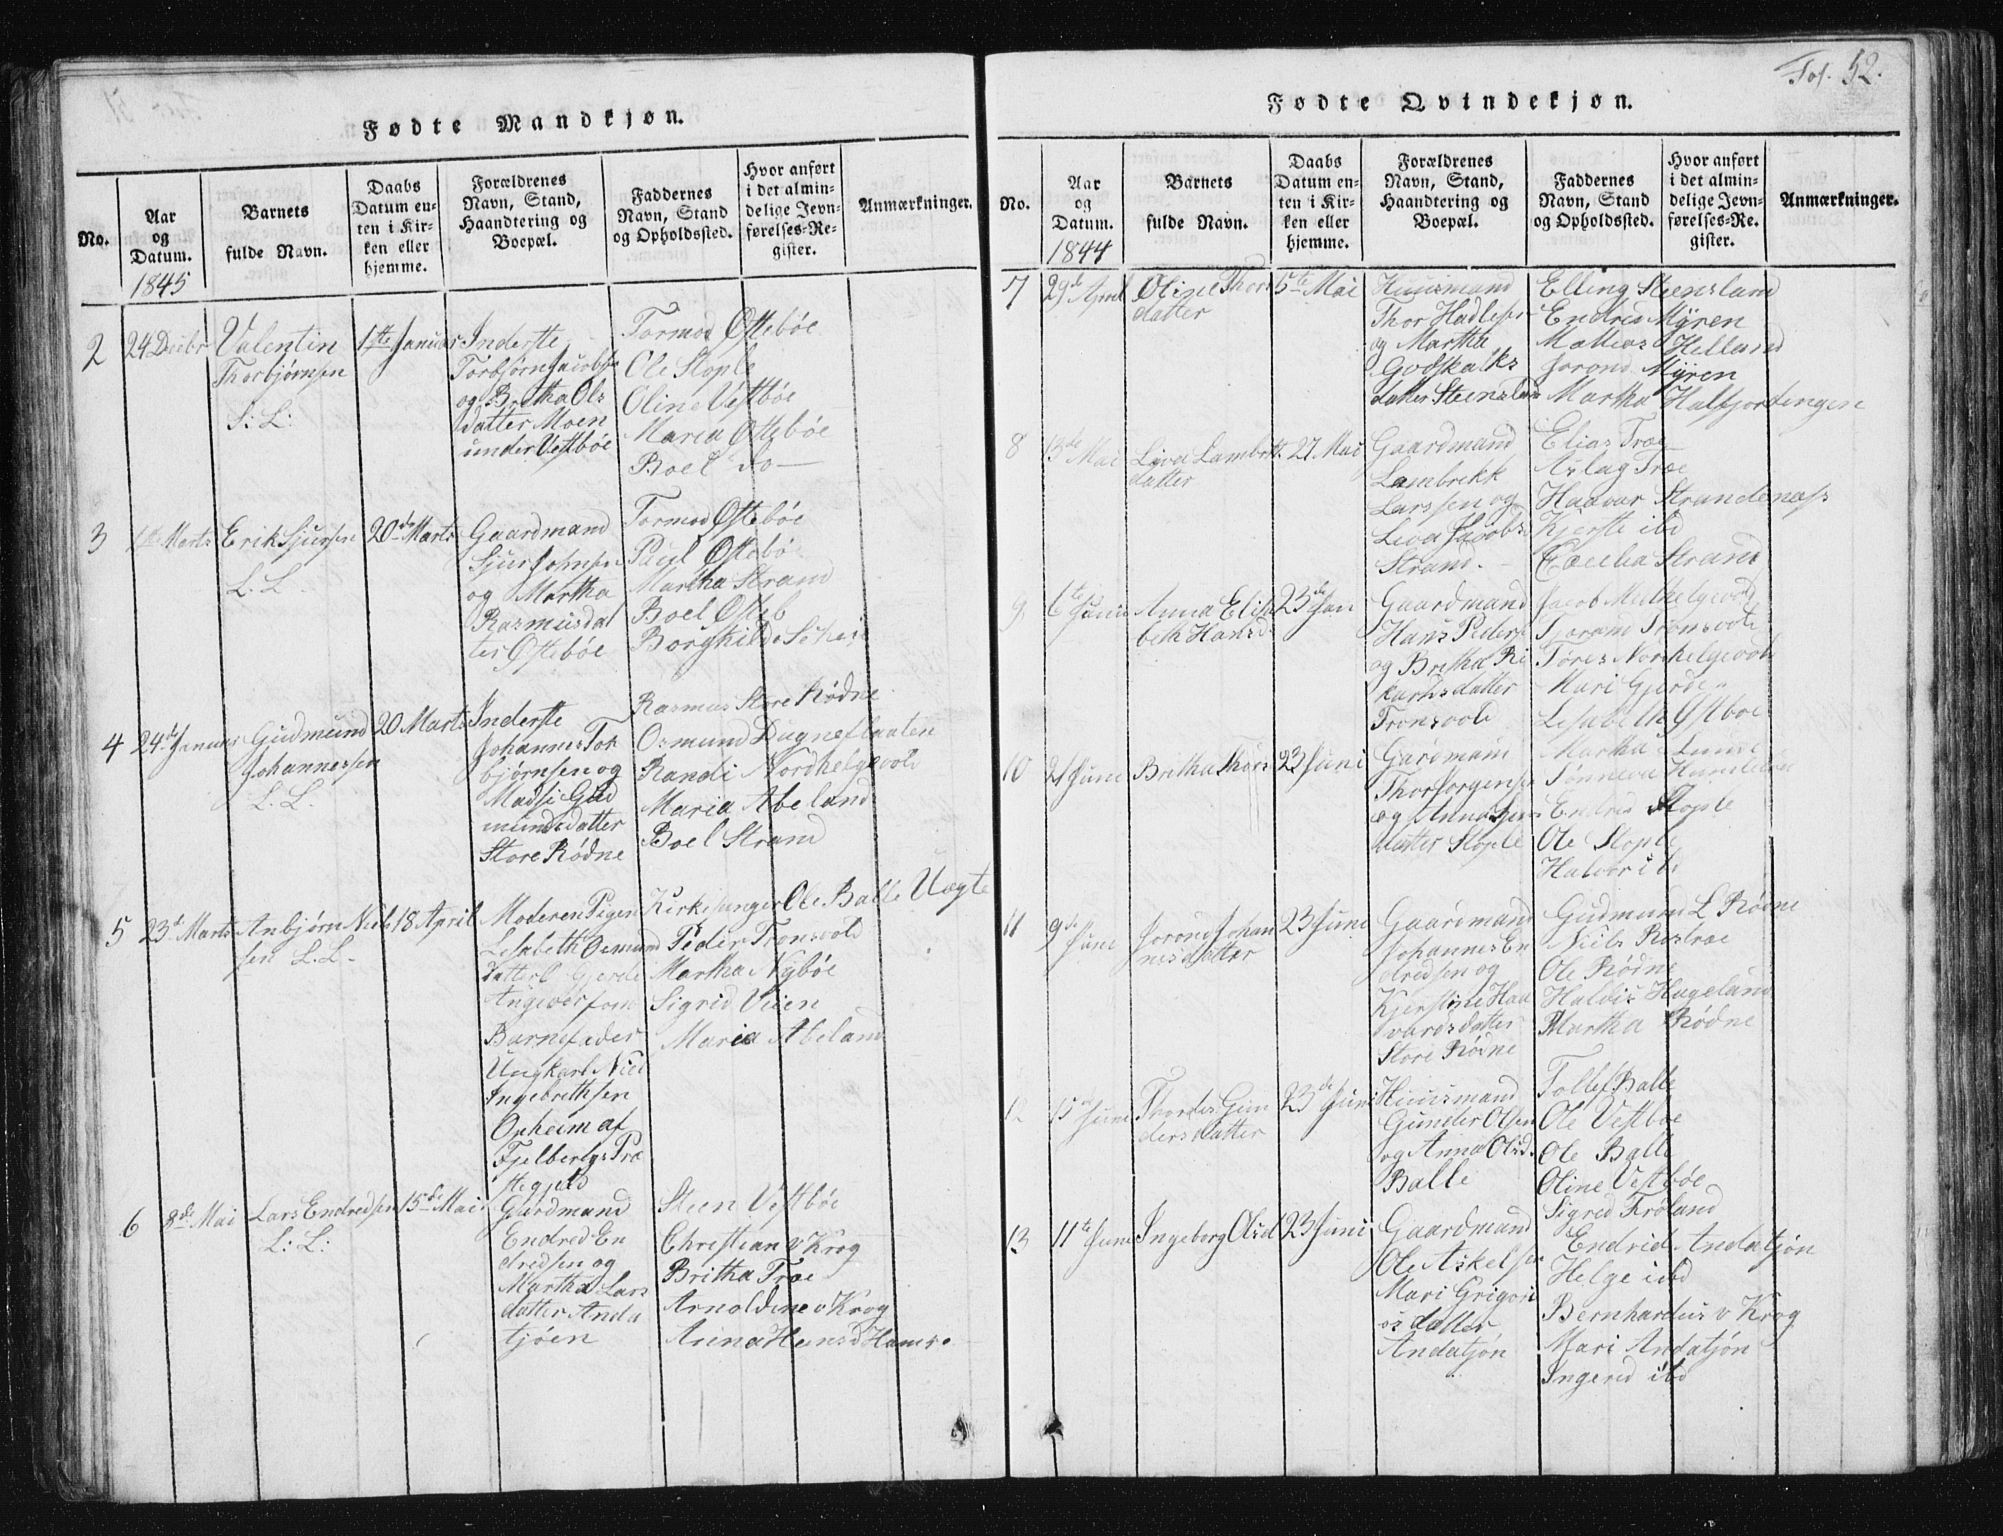 Fødte Mandkjøn.
No.
Aar
og
Datum.
1845
Barnets
fulde Navn.
Daabs
Datum en-
ten i Kir-
ken eller
hjemme.
Forældrenes
Navn, Stand,
Haandtering og
Boepæl.
Faddernes
Navn, Stand
og Opholdssted.
Hvor anført
i det almin-
delige Jevn-
førelses-Re-
gister.
Anmærkninger.
2
24 Decbr
Valentin
Thorbjørnsen
1ste Januar
Inderste
Torbjørn Jacobse
og Bretha Ols
datter Moen
under Vestbøe
Tormod Østebøe
Ole Stople
Oline Vestbøe
Maria Østebøe
Boel do
3
1ste Marts
Erik Sjursen
L. L.
20de Marts
Gaardmand
Sjur Johnsen
og Martha
Rasmusdat
ter Østebøe
Tormod Østebøe
Paul Østebøe
Martha Strand
Boel Østeb
Borghilde
4
24de Januar
Gudmund
Johannessen
L. L.
20 Marts
Inderste
Johannes Tor
bjørnsen og
Madsi Gud
mundsdatter
Store Rødne
Rasmus Store Rødne
Osmund Dagneflaaten
Randi Nordhelgevold
Maria Abeland
Boel Strand
5
23de Marts
Anbjørn Niels
sen L. L.
18 April
Moderen Pigen
Lisabeth Osmund
datter Gjerde
Angiver som
Barnefader
Ungkarl Niel
Ingebrethsen
Opheim af
Fjelbergs Præ
stegjeld
Kirkesanger Ole Balle Uægte
Peder Tronsvold
Martha Nybøe
Sigrid Veien
Maria Abeland
6
8de Mai
Lars Endredsen
L: L:
15de Mai
Gaardmand
Endred En
dredsen og
Martha Lars
datter Anda
tjøen
Steen Vestbøe
Christian v Krog
Britha Træe
Arnoldine v Krog
Anna Hansd Hamre
Fol. 52.
Fødte Qvindekjøn.
No.
Aar
og
Datum.
1844
Barnets
fulde Navn.
Daabs
Datum en-
ten i Kir-
ken eller
hjemme.
Forældrenes
Navn, Stand,
Haandtering og
Boepæl.
Faddernes
Navn, Stand
og Opholdssted.
Hvor anført
i det almin-
delige Jevn-
førelses-Re-
gister.
Anmærkninger.
7
29de April
Oline Thors
datter
5te Mai
Huusmand
Thor Hadlesen
og Martha
Godskalks
datter Steensland
Elling Steensland
Endres Myren
Mathias Helland
Joron Myren
Martha Halfjordengen
8
13de Mai
Liva Lambrt
datter
27 Mai
Gaardmand
Lambrekt
Larssen og
Liva Jacobs
Strand.
Elias Træe
Aslag Træe
Haavar Strandenæss
Kjerste ibd
Cecelia Strand
9
6te Juni
Anna Elisa
beth Hansd
23de Jun
Gaardmand
Hans Peders
og Bretha Ri
kardsdatter
Tronsvold
Jacob Medhelgevold
Joram Tronsvold
Tøres Nordhelgevold
Mari Gjerde
Lisabeth Østboe
10
21 Juni
Britha Thors
23 Juni
Gardmand
Thor Jørgensen
og Anna
datter Stople
Martha Lunde
Endre Stople
Ole Stople
Halvor ibd
11
9de Juni
Joron Johan
nesdatter
23 Juni
Gaardmand
Johannes En
dredsen og
Kjerstine Haa
vardsdatter
Store Rødne
Gudmund L Rødne
Niels Rostræe
Ole Rødne
Haldis Hageland
Martha Rødne
12
15de Juni
Thordis Gun
dersdatter
23de Juni
Huusmand
Gunder Olsen
og Anna Olsd.
Balle
Tollef Balle
Ole Vestboe
Ole Balle
Oline Vestbøe
Sigrid Frøland
13
11te Juni
Ingeborg Olsd
23 Juni
Gaardmand
Ole Askelsen
Mari Grigori
usdatter
Andatjøn
Endrid Andatjøn
Helge ibd
Bernhardus v Krog
Mari Andatjøn
Ingerid ibd